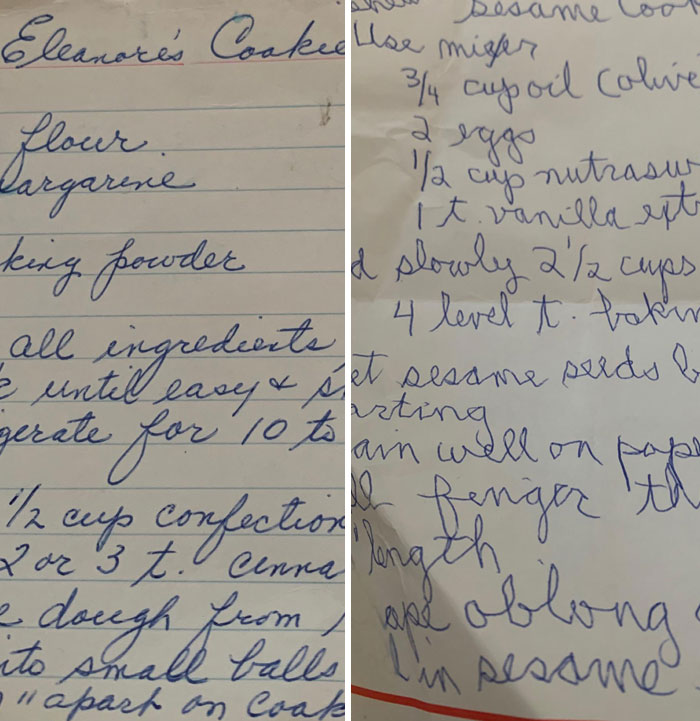 Eleanore's Cookie
flour
margarine
king powder
all ingredients
until easy &
gerate for 10 to
1/2 cup confection
2 or 3 t. cinna
dough from
to small balls
" apart on cook
sesame Cook
Use mixer
3/4 cup oil (olive
2 eggs
1/2 cup nutrasw
1 t. vanilla extr
d slowly 2 1/2 cups
4 level t. bakin
et sesame seeds b
arting
ain well on pape
ll finger th
" length
ape oblong
l in sesame